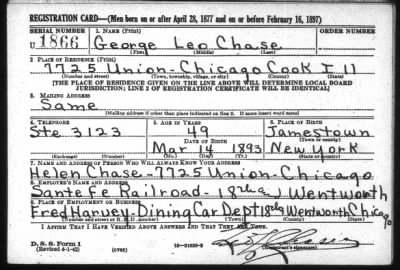 REGISTRATION CARD—(Men born on or after April 28, 1877 and on or before February 16, 1897)
SERIAL NUMBER 1. NAME (Print) ORDER NUMBER
U 1866 George Leo Chase
(First) (Middle) (Last)
2. PLACE OF RESIDENCE (Print)
7725 Union-Chicago Cook Ill
(Number and street) (Town, township, village, or city) (County) (State)
[THE PLACE OF RESIDENCE GIVEN ON THE LINE ABOVE WILL DETERMINE LOCAL BOARD
JURISDICTION; LINE 2 OF REGISTRATION CERTIFICATE WILL BE IDENTICAL]
3. MAILING ADDRESS
Same
[Mailing address if other than place indicated on line 2. If same insert word same]
4. TELEPHONE 5. AGE IN YEARS 6. PLACE OF BIRTH
Ste 3123 49 Jamestown
DATE OF BIRTH (Town or county)
Mar 14 1893 New York
(Exchange) (Number) (Mo.) (Day) (Yr.) (State or country)
7. NAME AND ADDRESS OF PERSON WHO WILL ALWAYS KNOW YOUR ADDRESS
Helen Chase--7725 Union-Chicago
8. EMPLOYER'S NAME AND ADDRESS
Sante Fe Railroad-18th & Wentworth
9. PLACE OF EMPLOYMENT OR BUSINESS
Fred Harvey-Dining Car Dept 18th Wentworth Chicago
(Number and street or R. F. D. number) (Town) (County) (State)
I AFFIRM THAT I HAVE VERIFIED ABOVE ANSWERS AND THAT THEY ARE TRUE.
D. S. S. Form 1
(Revised 4-1-42) (over) 16—21630-2 (Registrant's signature)